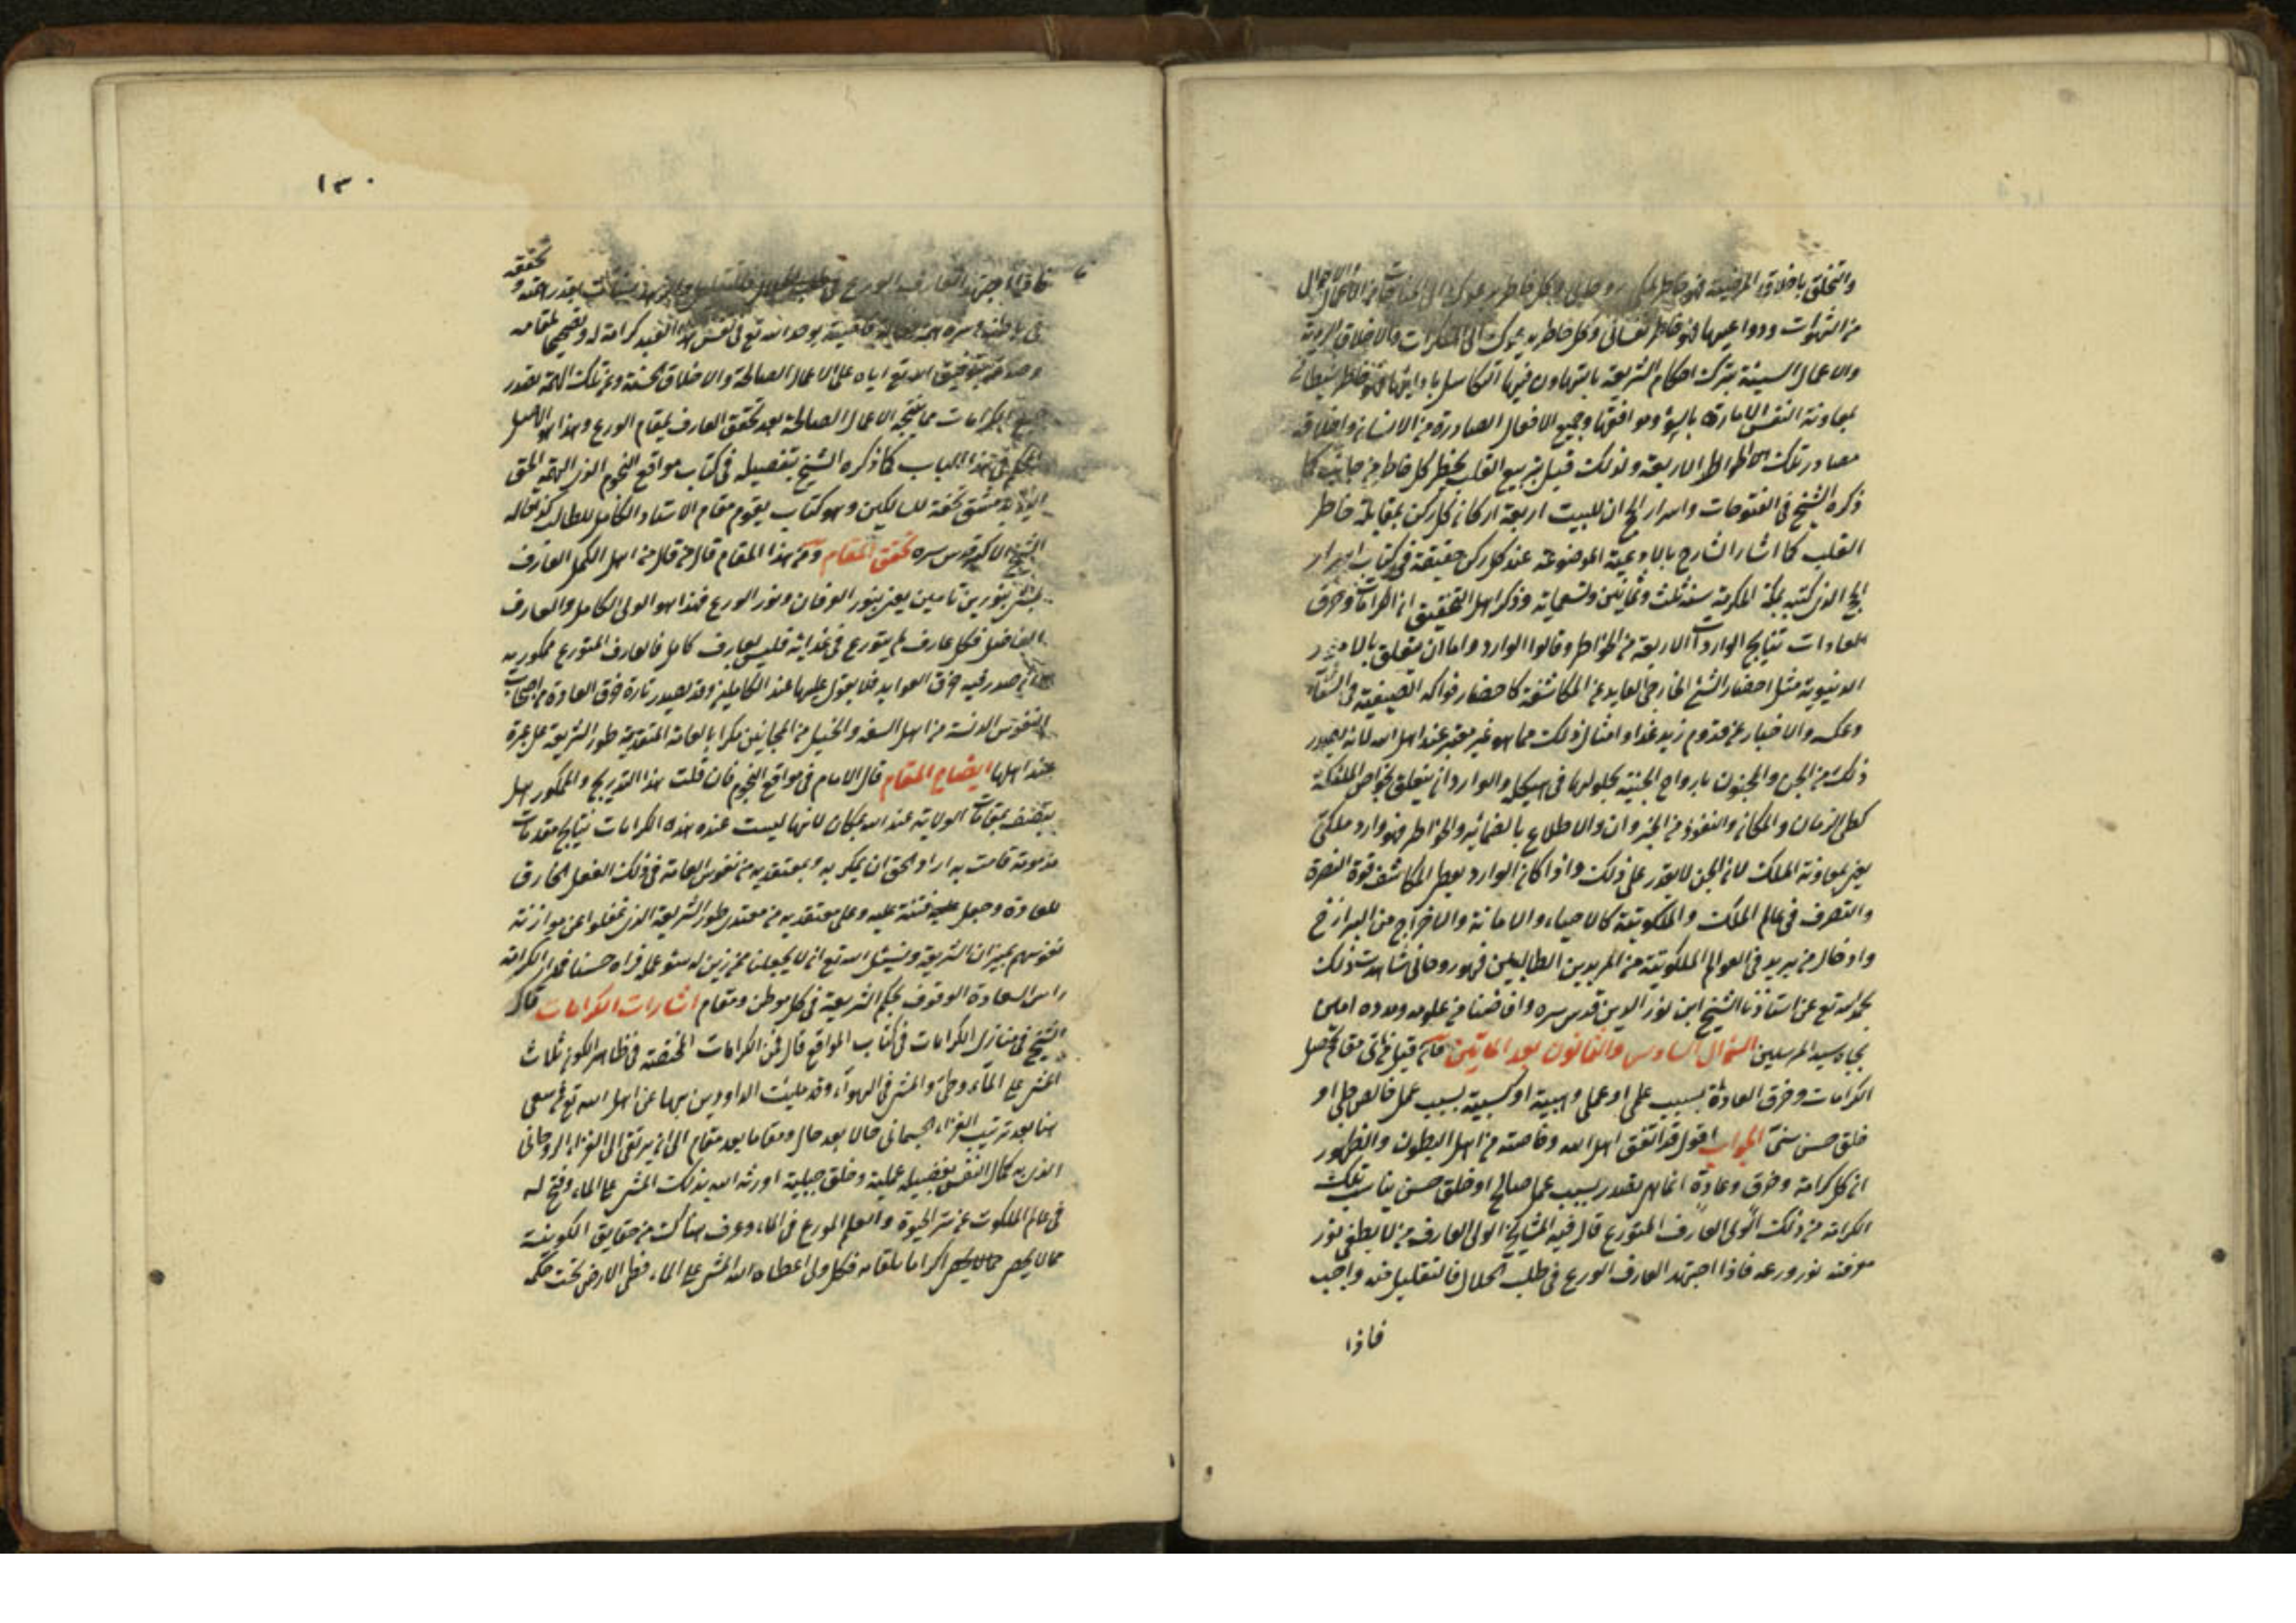 والتخلق باخلاق المرضية فهو خاطر ملكى روحانى وكل خاطر يدعوك الى
من الشهوات ودواعيها فهو خاطر نفسانى وكل خاطر يدعوك الى المنكرات والاخلاق الردية
والاعمال السيئة بترك احكام الشريعة بالتهاون فيها والتكاسل بادايها فهو خاطر شيطانى
بمعاونة النفس الامارة بالسوء وموافقتها وجميع الافعال الصادرة من الانسان واخلاقه
مصادر تلك الخواطر الاربعة ولذلك قيل بتربيع القلب يخطر كل خاطر من جانب كما
ذكره الشيخ فى الفتوحات واسرار الحج ان للبيت اربعة اركان كل ركن بمقابلة خاطر
القلب كما اشار الشارح بالادعية الموضوعة عند كل ركن حقيقة فى كتاب اسرار
الحج الذى كتبه بمكة المكرمة سنة ثلث وثمانين وتسعماية وذكر اهل التحقيق ان الكرامات وخرق
العادات نتايج الواردات الاربعة من الخواطر وقالوا الوارد واما ان يتعلق بالامور
الدنيوية مثل احضار الشئ الخارجى العايد عن المكاشفة كاحضار فواكه الصيفية فى الشتاء
وعكسه والاخبار عن قدوم زيد غدا وامثال ذلك مما هو غير معتبر عند اهل الله لانه يصدر
ذلك من الجن والمجنون بارواح الجنية بحلولها فى هيكله والوارد ان يتعلق بخواص الملئكة
كطى الزمان والمكان والنفوذ من الجدران والاطلاع بالضمائر والخواطر فهو وارد ملكى
يعنى بمعاونة الملك لان الجن لا يقدر على ذلك واذا كان الوارد يعطى المكاشف قوة النصرة
والتصرف فى عالم الملك والملكوتية كالاحياء والاماتة والاخراج من البرازخ
وادخال من يريد فى العوالم الملكوتية من المريدين الطالبين فهو روحانى شاهدت ذلك
بحمد الله تع عن استاذنا الشيخ ابن نور الدين قدس سره وافاضنا من علومه ومدده امين
بجاه سيد المرسلين السؤال السادس والثمانون بعد المأتين فان قيل من اى مقام يحصل
الكرامات وخرق العادة بسبب علمى او عملى وهبية او كسبية بسبب عمل خالص جلى او
خلق حسن سنى الجواب اقول قد اتفق اهل الله وخاصته من اهل البطون والظهور
ان كل كرامة وخرق وعادة انما هم بقدر بسبب عمل صالح او خلق حسن يناسب تلك
الكرامة من ذلك الولى العارف المتورع قال فيه المشايخ الولى العارف من لا يطفى نور
معرفته نور ورعه فاذا اجتهد العارف الورع فى طلب الحلال فالتقليل منه واجب
فاذا
١٣٠
تحققه
فاذا اجتهد العارف الورع فى طلب الحلال بقدر همته و
فى باطنه وسره يوجد الله تع فى نفس هذا العبد كرامة له وتصحيحا لمقامه
وصدقه بتوفيق الله تع اياه على الاعمال الصالحة والاخلاق الحسنة وعن تلك الهمة تصدر
جميع الكرامات مما نتيجة الاعمال الصالحة بعد تحقق العارف بمقام الورع وهذا هو الاصل
فى هذا الباب كما ذكره الشيخ بتفصيله فى كتاب مواقع النجوم الذى الهمه الحق
بدمشق تحفة للسالكين وهو كتاب يقوم مقام الاستاد الكامل للطالب كذا قاله
الشيخ الاكبر قدس سره تحقق المقام ومن هذا المقام قال من قال من اهل الكمل العارف
بنورين تامين يعنى بنور العرفان ونور الورع فهذا هو الولى الكامل والعارف
الفاضل فكل عارف لم يتورع فى غدائه فليس بعارف كامل فالعارف المتورع ممكور به
صدر فيه خرق العوايد فلا يعول عليها عند الكاملين وقد يصدر تارة خرق العادة من اصحاب
النفوس الدنسة من اهل السفه والخيل من المجانين مكرا بالعامة المتعدية طور الشريعة على
عند اهلها ايضاح المقام قال الامام فى مواقع النجوم فان قلت هذا التدريج والممكور هل
يتصف بمقامات الولاية عند الله بمكان لانها ليست عنده هذه الكرامات نتايج مقدمات
مذمومة قامت به اراد الحق ان يمكر به وبمعتقديه من نفوس العامة فى ذلك الفعل الخارق
للعادة وجعل عليه فتنة عليه وعلى معتقديه من معتدى طور الشريعة الذى غفلوا عن موازنة
نفوسهم بميزان الشريعة ونسئل الله تع ان لا يجعلنا ممن زين له سوء عمله فراه حسنا فهذه الكرامة
راس السعادة الوقوف بحكم الشريعة فى كل موطن ومقام اشارات الكرامات قال
الشيخ فى منازل الكرامات فى كتاب المواقع قال فمن الكرامات المختصة فى ظاهر الكون ثلاث
المشى على الماء وطى والمشى فى الهواء وقد مليئت الدواوين بها عن اهل الله تع فمن سعى
هنا بعد ترتيب الغذاء الجسمانى حالا بعد حال ومقاما بعد مقام الى ان يرتقى الى الغذاء الروحانى
الذى به كمال النفس بفضيلة عملية وخلق جبلية اورثه الله بذلك المشى على الماء وفتح له
فى عالم الملكوت عن سر الحيوة والعلم المورع فى الماء وعرف هناك من حقايق الكونية
ممالا يحصر ممالا يحصر اكراما لمقامه فكل ولى اعطاه الله المشى على الماء فطى الارض تحت حكمه